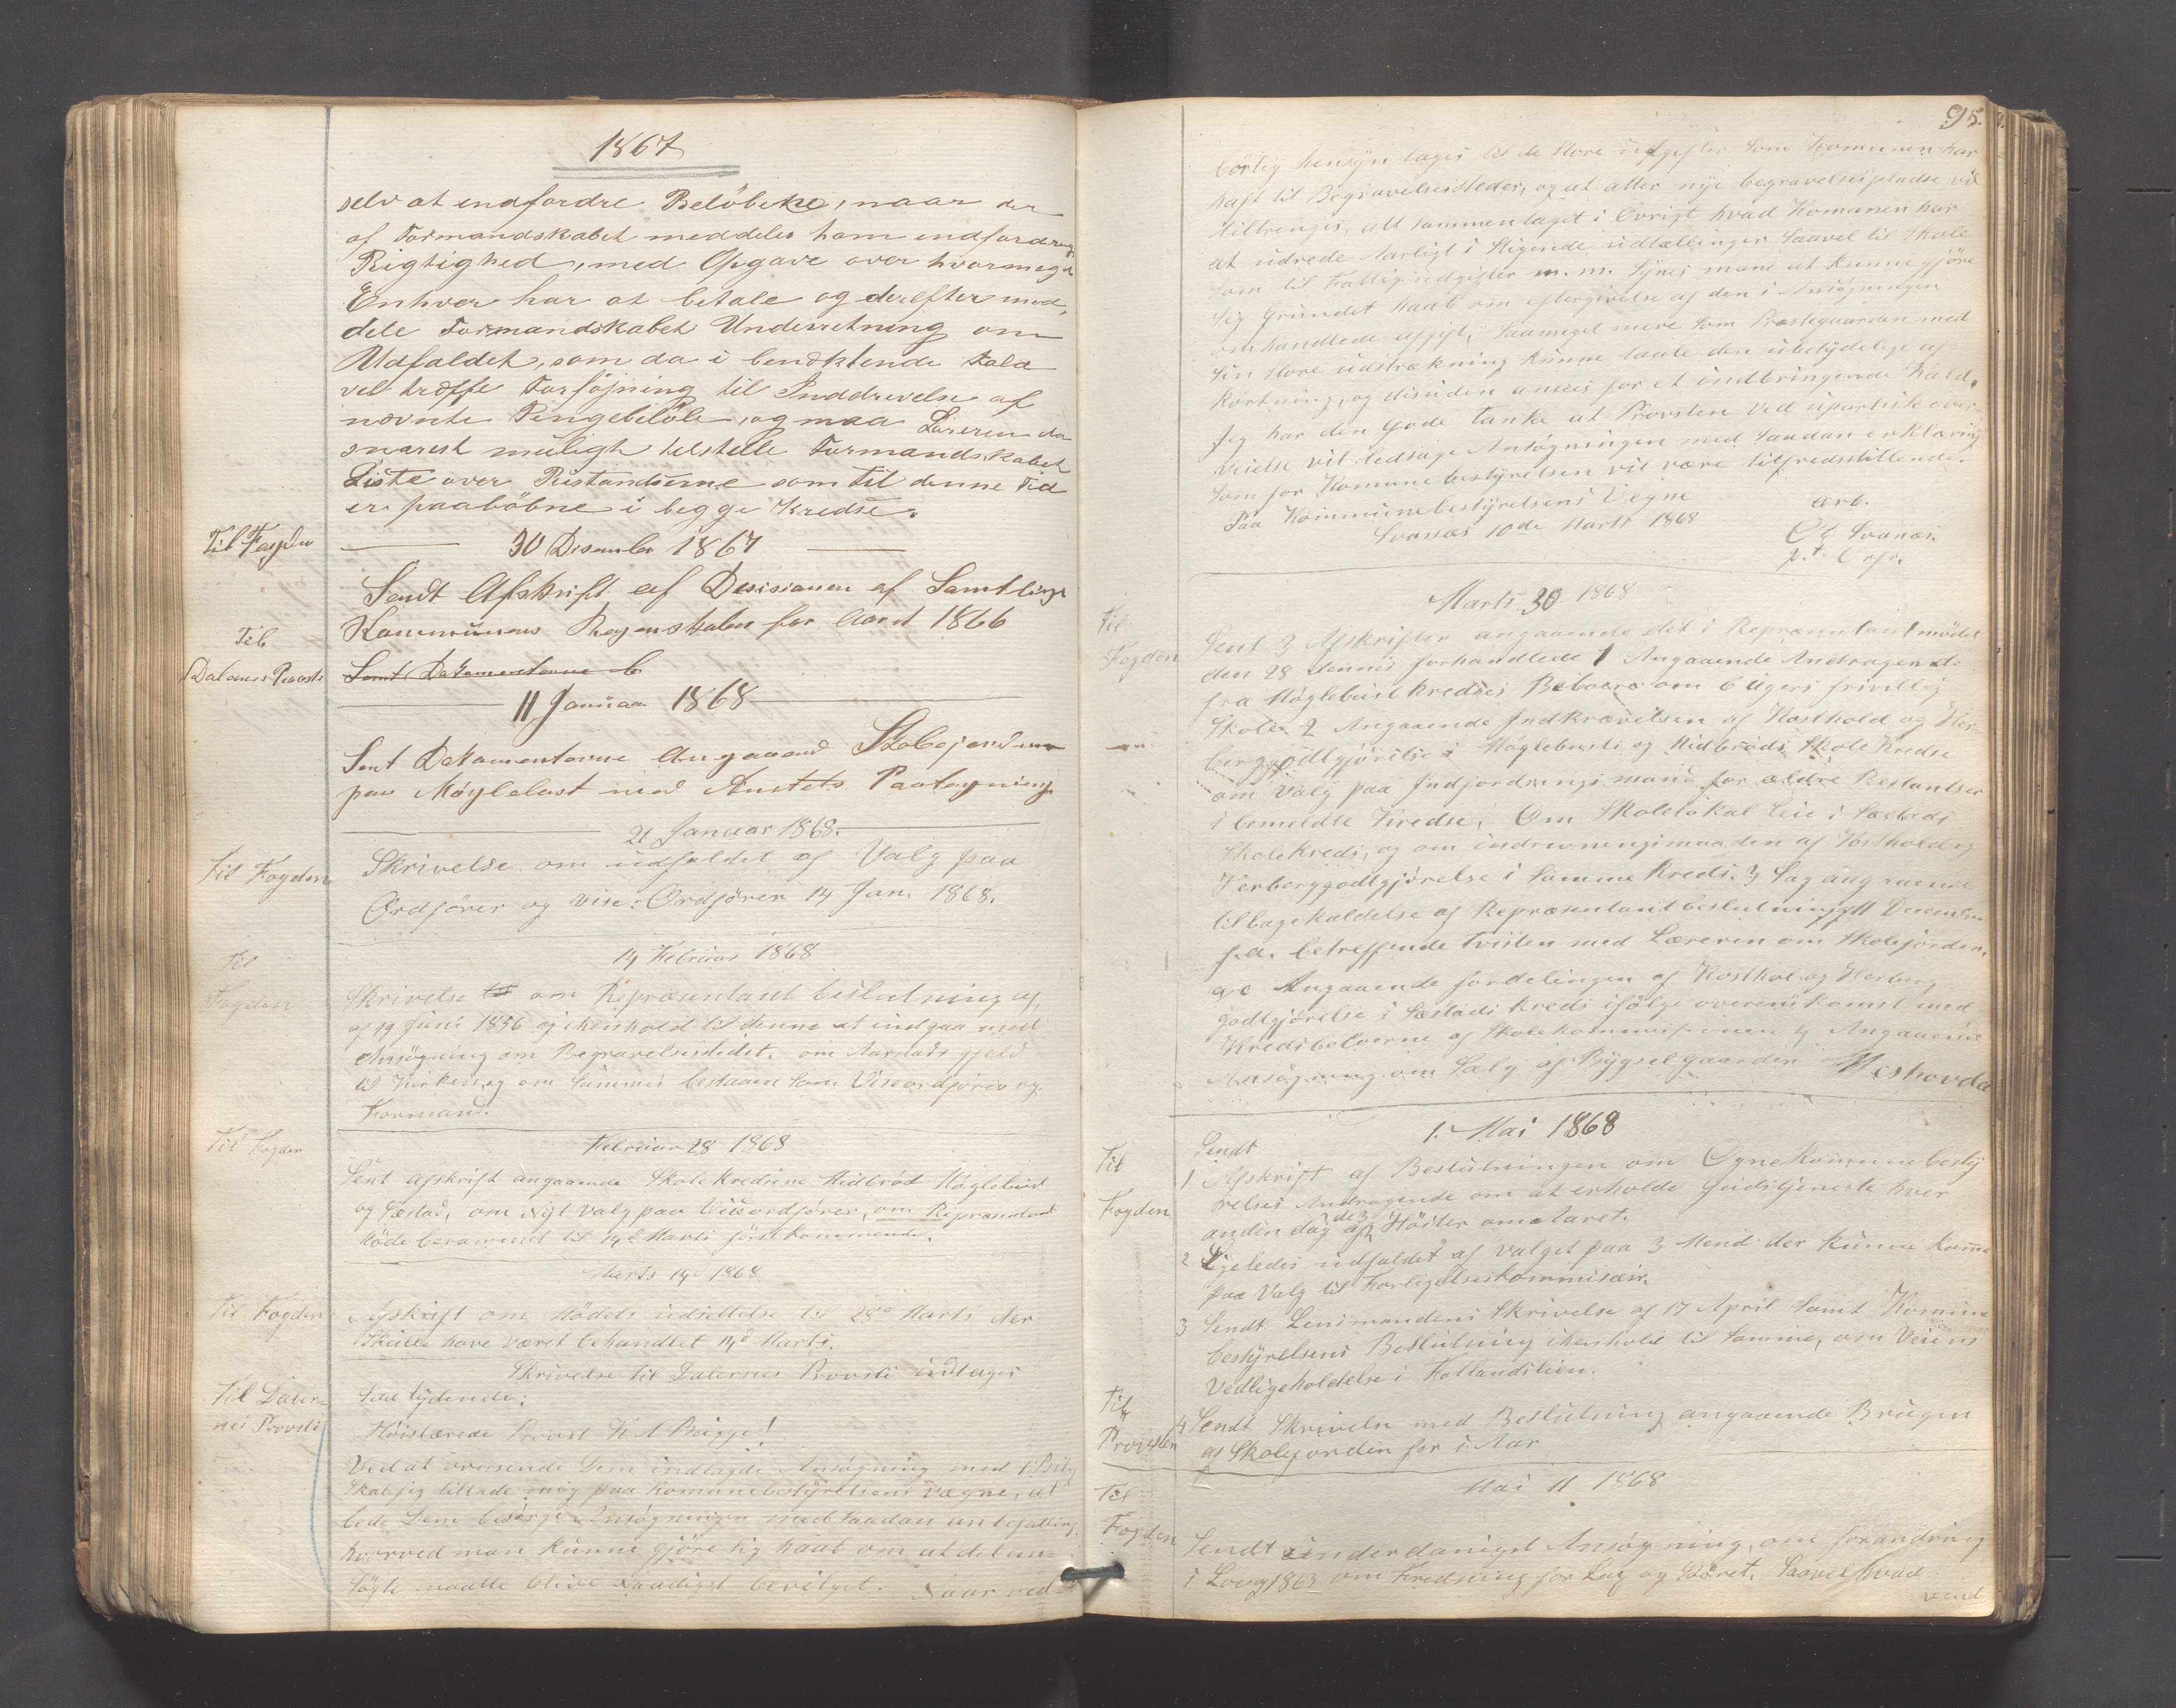 1867
selv at indfordre Belöbene, naar der
af Formandskabet meddeles ham indfordrings
Rigtighed, med Opgave over hvormeget
Enhver har at betale og derefter med-
dele Formandskabet Underretning om
Udfaldet, som da i benægtende Fald
vil træffe Forföjning til Inddrivelse af
nævnte Pengebelöb, og maa Læreren da
snarest muligt tilstille Formandskabet
Liste over Restantserne som til denne Tid
er paalöbne i begge Kredse.
Til Fogden
30 Desember 1867
Sendt Afskrift af Desisionen af Samtlige
Kommunens Regnskaber for Aaret 1866
Til
Dalernes Provsti
Sent Dokumenterne
11 Januar 1868
Sent Dokumenterne Angaaend Skolejorden
paa Möglebost med Amtets Paategning
21 Januar 1868.
Til Fogden
Skrivelse om udfaldet af Valg paa
Ordförer og vise-Ordförer 14 Jan. 1868.
14 Februar 1868
Til
Fogden
Skrivelse om Repræsentant beslutning af
af 19 Juni 1856 og ihenhold til denne at indgaa med
Ansögning om Begravelsesstedet. om Aarstads gjeld
til Kirken, og om Sammes bestaaen som Viseordförer og
Formand.
Til Fogden
Februar 28 1868
Sent afskrift angaaende Skolekredsene Midbröd Möglebust
og Sæstad, om Nyt valg paa Viseordförer, om Repræsentant
Möde berammet til 14de Marts förstkommende.
Marts 14 1868
Til Fogden
Afskrift om Mödets udsættelse til 28de Marts der
Skulde have været behandlet 14de Marts.
Skrivelse til Dalernes Provsti indtages
Til Daler-
nes Provsti
Saa lydende:
Höistærede Provst
Ved at oversende Dem indlagde Ansögning med 1 Bilag
Skal jeg tillade mig paa Komunebestyrelsens vegne, at
bede Dem besörge Ansögningen med saadan anbefalling
hvorved man kunne gjöre sig haab om at det an-
sögte maatte blive naadigst bevilget. Naar ved-
95.
börlig hensyn tages til de store udgifter som Komunen har
haft til Begravelsessteder, og at atter nye begravelsespladse vil
tiltrenges, alt sammenlaget i Övrigt hvad Komunen har
at udrede Aarligt i Stigende udtællinger saavel til Skole
som til Fattigudgifter m.m. Synes mane at kunne gjöre
sig Grundet Haab om eftergivelse af den i Ansögningen
omhandlede afgift, saameget mere som Præstegaarden med
sin store udstrækning kunne taale den ubetydelige af-
kortning, og desuden ansees for et indbringende Kald.
Jeg har den Gode tanke at Provsten ved upartisk over-
veielse vil ledsage Ansögningen med saadan erklæring
som for Komunebestyrelsen vil være tilfredsstillende.
Paa Kommunebestyrelsens Vegne
Svanæs 10de Marts 1868
ærb.
Svanæs.
p.t. Orfr.
Marts 30 1868
Til
Fogden
Sent 3 Afskrifter angaaende det i Repræsentantmödet
den 28 dennes forhandlede 1 Angaaende Andragende
fra Möglebust kredses Beboere om 6 Ugers frivillig
Skole 2 Angaaende Indkrævelsen af Kosthold og Her-
berggodtgjörelse i Möglebusts og Midbröds Skole Kredse
om Valg paa Indfordringsmand for ældre Restantser
i bemeldte Kredse. Om Skolelokal Leie i Sæstads
Skolekreds, og om inddrivningsmaaden af Kosthold og
Herberggodtgjörelse i Samme Kreds. 3 Sag angaaende
tilbagekaldelse af Repræsentantbeslutning af 11 December
f.a. betreffende tvisten med Læreren om Skolejorden.
Angaaende fordelingen af Kosthol og Herberg-
godtgjörelse i Sæstads kreds ifölge overenskomst med
Kredsbeboerne af Skolekommissionen 4 Angaaende
Ansögning om Salg af Bygselgaarden
1. Mai 1868
Til
Fogden
Sendt
1 Afskrift af Beslutningen om Ogne Komunebesty
relses Andragende om at erholde Gudstjeneste hver
anden dag af de 3 Höiter om Aaret.
2 Ligeledes udfaldet af valget paa 3 Mend der kunne komme
paa Valg til Forligelseskommisær.
3 Sendt Lensmandens Skrivelse af 17 April samt Komune
bestyrelsens Beslutning ihenhold til samme, om Veiens
Vedligeholdelse i Hollandslien.
Til
Provsten
4 Sendt Skrivelse med Beslutning angaaende Brugen
af Skolejorden for i Aar
Mai 11 1868
Til
Fogden
Sendt underdanigst Ansögning, om forandring
i Lov 1863 om Fredning for Lax og Öret. Saavel hvad
vend